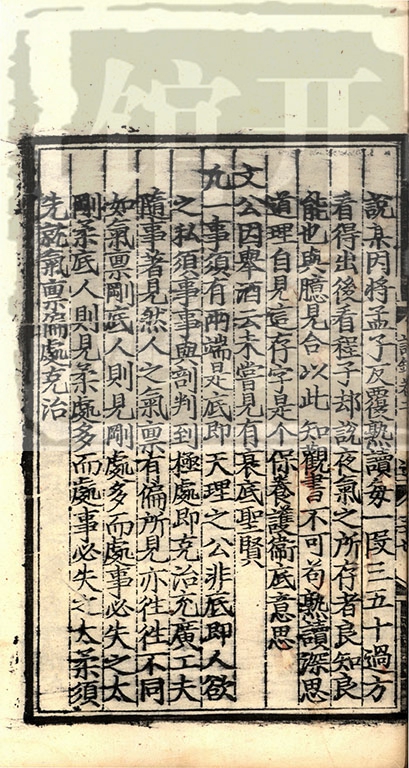 說某因將孟子反覆熟讀每一段三五十過方
看得出後看程子却說夜氣之所存者良知良
能也與臆見合以此知觀書不可苟熟讀深思
道理自見這存字是个保養護衛底意思
文公因舉酒云未嘗見有衰底聖賢
凡一事須有兩端是底即天理之公非底即人欲
之私須事事與剖判到極處即克治充廣工夫
隨事著見然人之氣禀有偏所見亦往往不同
如氣禀剛底人則見剛處多而處事必失之太
剛柔底人則見柔處多而處事必失之太柔須
先就氣禀偏處克治